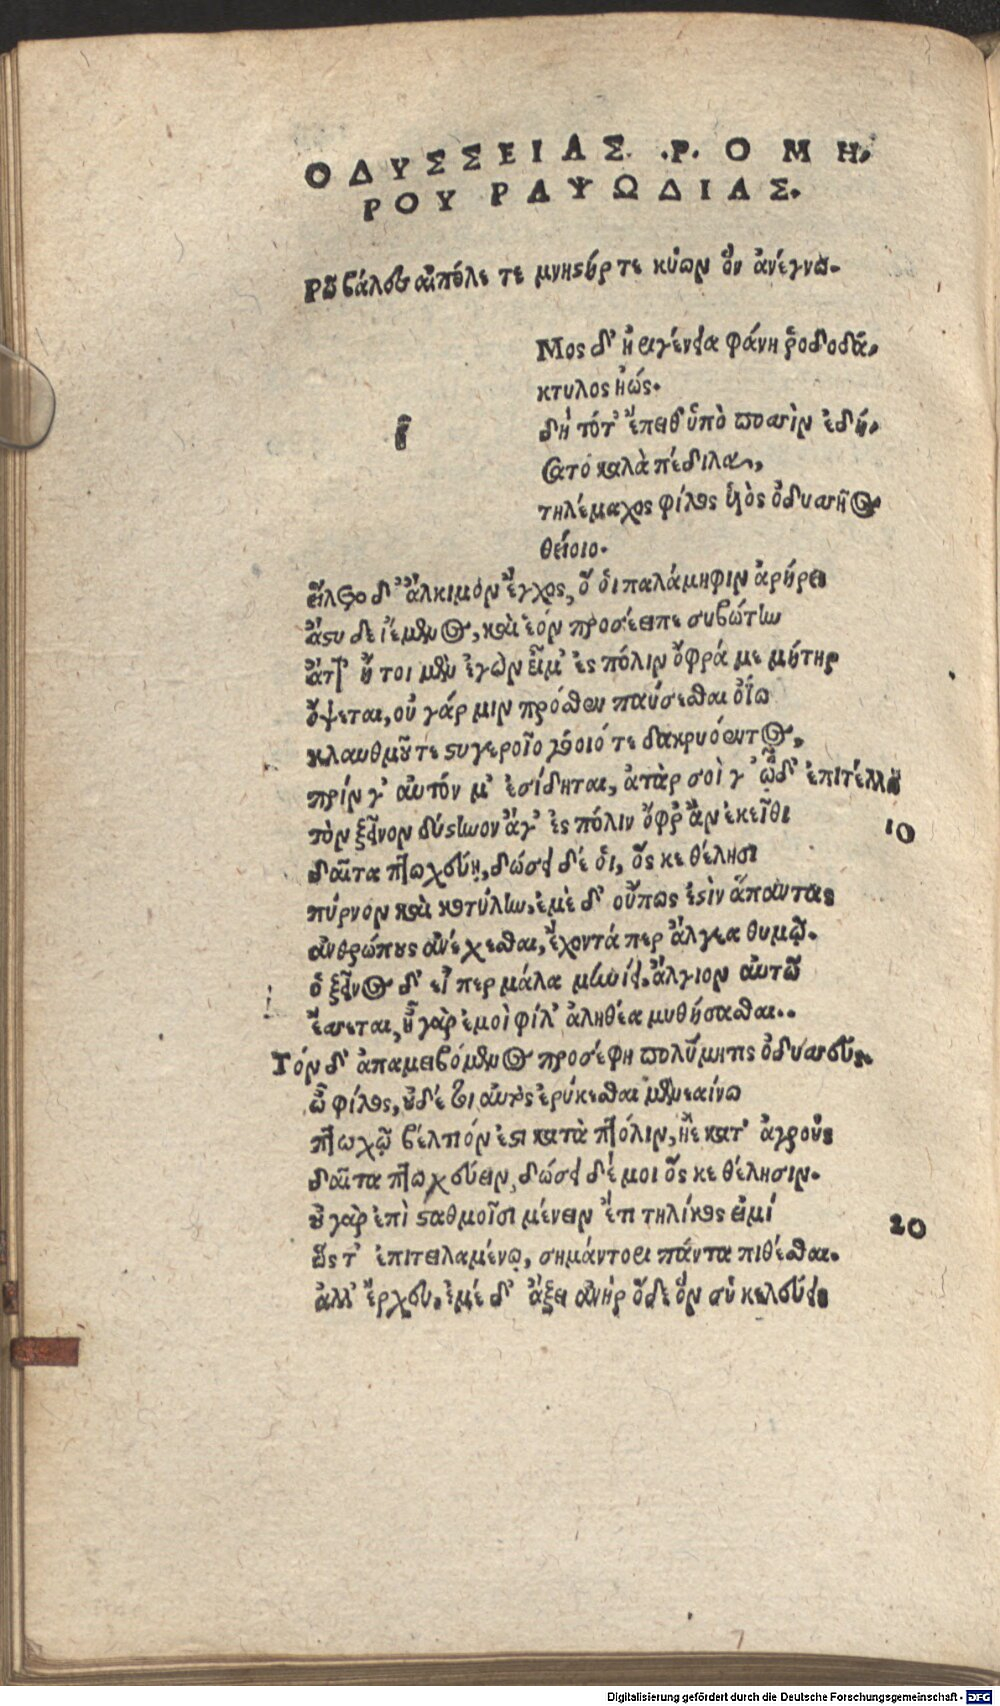 ΟΔΥΣΣΕΙΑΣ .Ρ. ΟΜΗ,
ΡΟΥ ΡΑΨΩΔΙΑΣ.
Ρῶ βάλεν αἰπόλε τε μνηστήρ τε κύων ὃν ἀνέγνω.
Μος δ' ἠριγένεια φάνη ῥοδοδά,
κτυλος ἠώς.
ε
δὴ τότ' ἔπειθ' ὑπὸ ποσσὶν ἐδή,
σατο καλὰ πέδιλα,
τηλέμαχος φίλος υἱὸς ὀδυσσῆος
θείοιο.
εἵλετο δ' ἄλκιμον ἔγχος, ὅ ὁι παλάμηφιν ἀρήρει
ἄστυ δε ἱέμενος, καὶ ἑόν προσέειπε συβώτην
ἄττ' ἤ τοι μὲν ἐγὼν εἶμ' ἐς πόλιν ὄφρά με μήτηρ
ὄψεται, οὐ γάρ μιν πρόσθεν παύσεσθαι ὀΐω
κλαυθμοῦ τε στυγεροῖο γόοιό τε δακρυόεντος,
πρίν γ' αὐτόν μ' ἐσίδηται, ἀτὰρ σοὶ γ' ὧδ' ἐπιτέλλω
τὸν ξεῖνον δύστηνον ἄγ' ἐς πόλιν ὄφρ' ἂν ἐκεῖθι
10
δαῖτα πτωχεύῃ, δώσει δέ ὁι, ὅς κε θέλησι
πύρνον καὶ κοτύλην, ἐμὲ δ' οὔπως ἐστὶν ἅπαντας
ἀνθρώπους ἀνέχεσθαι, ἔχοντά περ ἄλγεα θυμῷ.
ὁ ξεῖνος δ' εἴ περ μάλα μηνίει, ἄλγιον αὐτῶ
ἔσσεται, ἦ γὰρ ἐμοὶ φίλ' ἀληθέα μυθήσασθαι..
Τόν δ' ἀπαμειβόμενος προσέφη πολύμητις ὀδυσσεύς.
ὦ φίλος, οὐδέ τι αὐτὸς ἐρύκεσθαι μενεαίνω
πτωχῷ βέλτιόν ἐστι κατὰ πτόλιν, ἠὲ κατ' ἀγροὺς
δαῖτα πτωχεύειν, δώσει δέ μοι ὅς κε θέλησιν.
οὐ γὰρ ἐπὶ σταθμοῖσι μένειν ἔτι τηλίκος εἰμί
20
ὥς τ' ἐπιτειλαμένῳ, σημάντορι πάντα πιθέσθαι.
ἀλλ' ἔρχευ. ἐμέ δ' ἄξει ἀνὴρ ὅδε ὅν σὺ κελεύεις
7
Digitalisierung gefördert durch die Deutsche Forschungsgemeinschaft - DFG